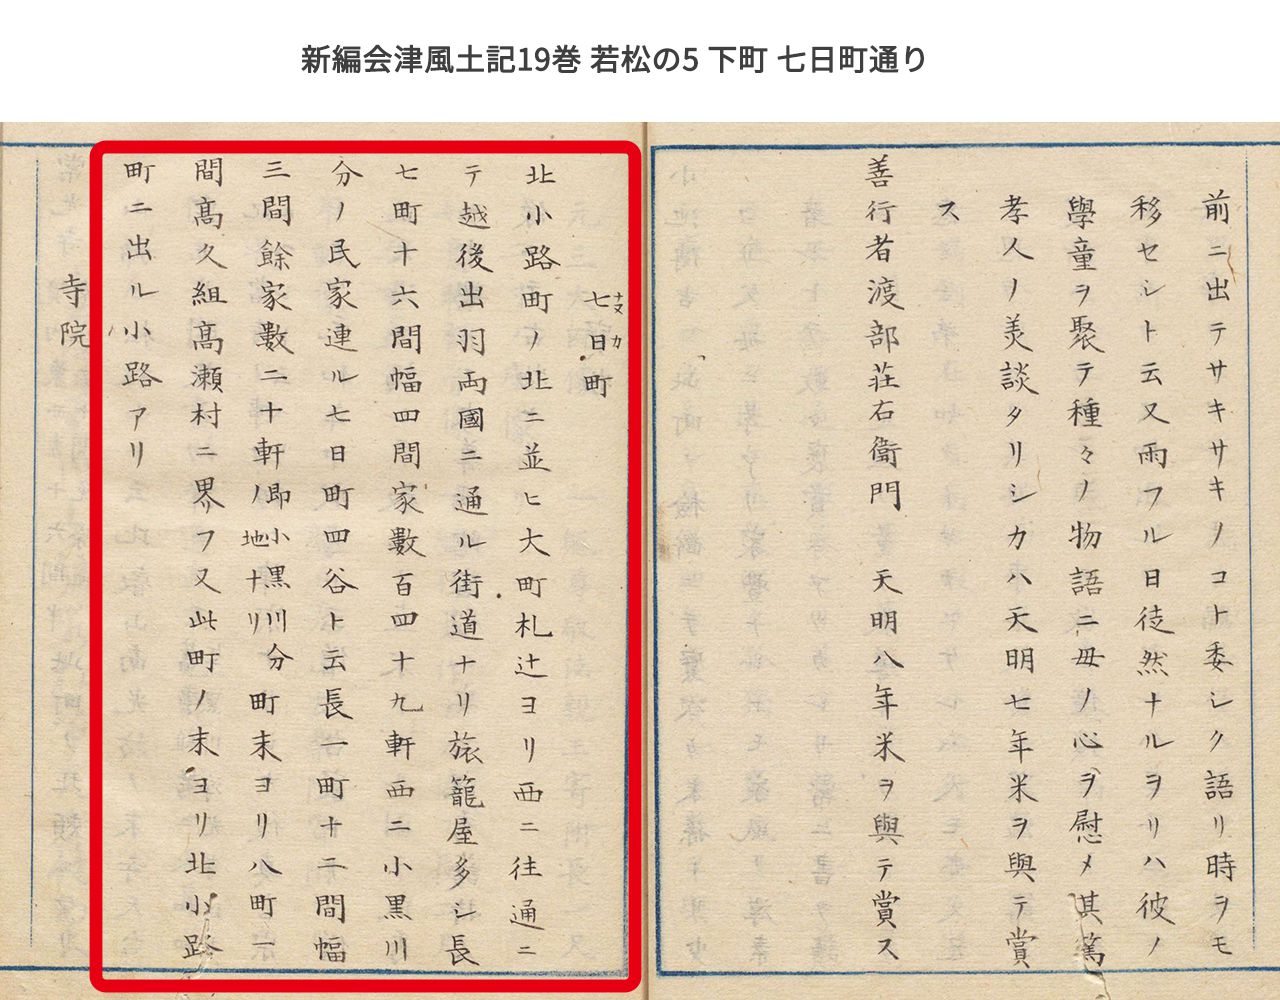 新編会津風土記19巻 若松の5 下町 七日町通り
前ニ出テサキサキノコト委シク語リ時ヲモ
移セシト云又雨フル日徒然ナルヲリハ彼ノ
學童ヲ聚テ種々ノ物語ニ母ノ心ヲ慰メ其篤
孝人ノ美談タリシカハ天明七年米ヲ與テ賞
ス
善行者渡部荘右衛門 天明八年米ヲ與テ賞ス
七日町
ナヌカ
北小路町ノ北ニ並ヒ大町札辻ヨリ西ニ往通ニ
テ越後出羽両國ニ通ル街道ナリ旅籠屋多シ長
七町十六間幅四間家數百四十九軒西ニ小黒川
分ノ民家連ル七日町四谷ト云長一町十二間幅
三間餘家數二十軒即小黒川分ノ地ナリ町末ヨリ八町一
間髙久組髙瀬村ニ界フ又此町ノ末ヨリ北小路
町ニ出ル小路アリ
寺院